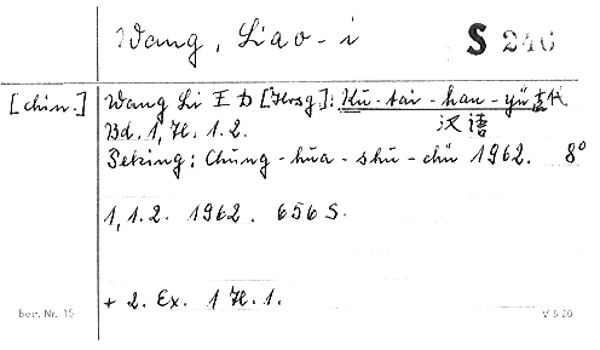 Wang, Liao-i
S 246
[chin.]
Wang Li 王力 [Hrsg.]: Ku-tai-han-yü 古代
汉语
Bd. 1, H. 1.2.
Peking: Chung-hua-shu-chü 1962. 8°
1,1.2. 1962. 656 S.
+ 2. Ex. 1 H. 1.
Best. Nr. 15
V 5 20